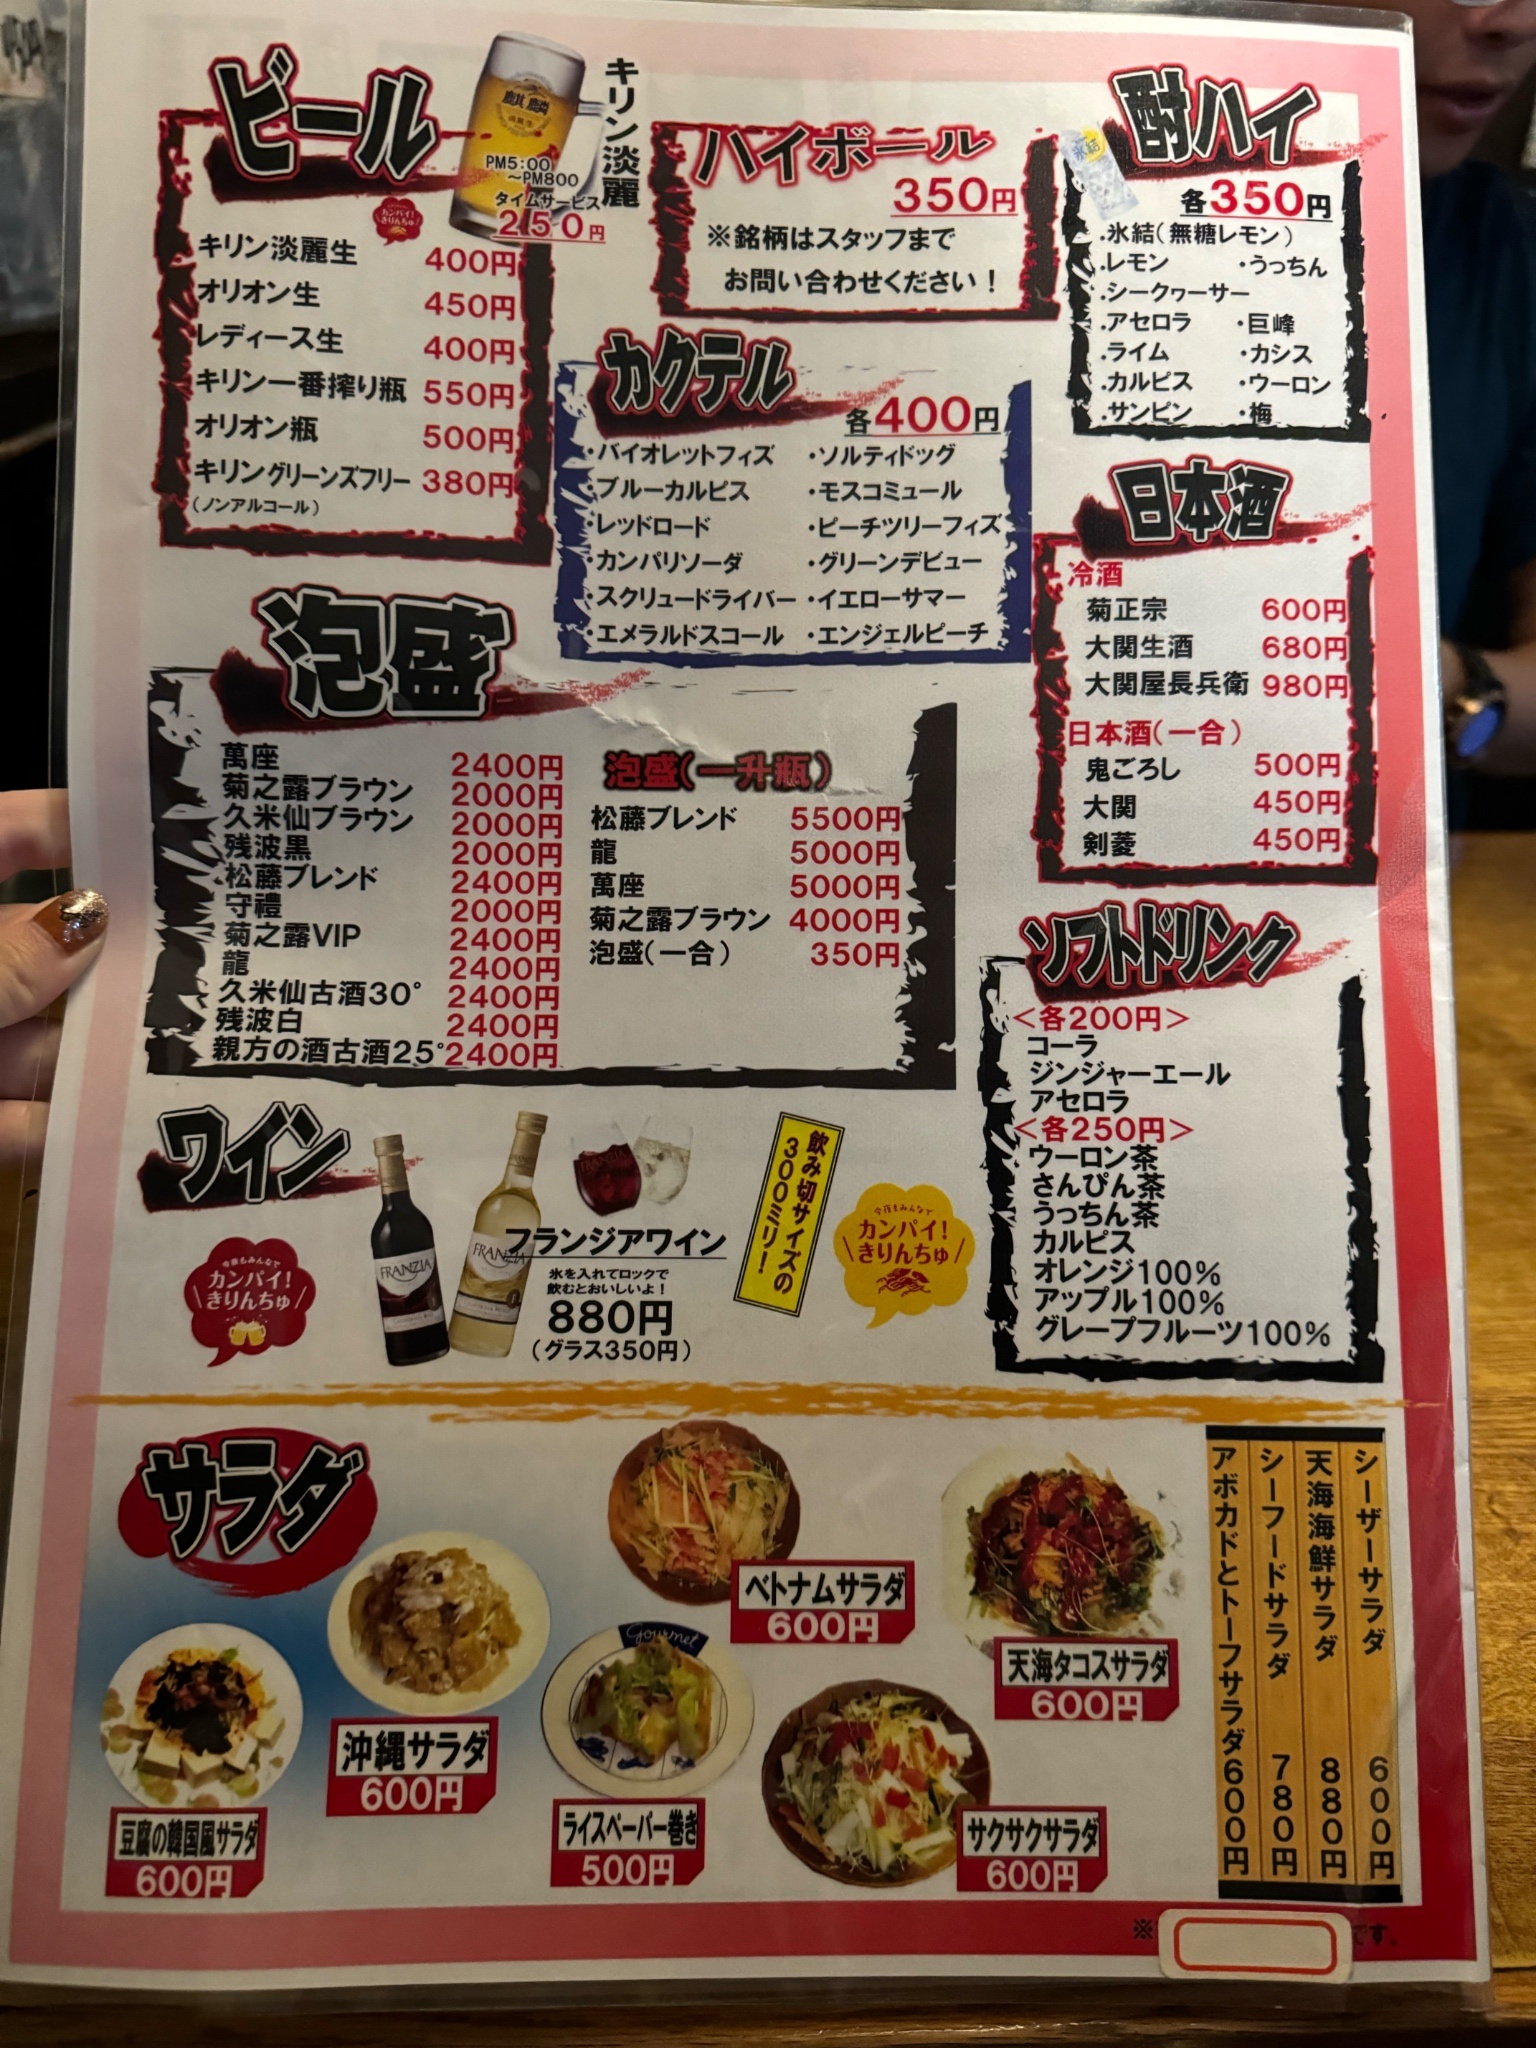 ビール
麒麟
淡麗生
キリン淡麗
PM5:00
～PM800
タイムサービス
250円
カンパイ！
きりんちゅ
キリン淡麗生 400円
オリオン生 450円
レディース生 400円
キリン一番搾り瓶 550円
オリオン瓶 500円
キリングリーンズフリー 380円
(ノンアルコール)
ハイボール
350円
※銘柄はスタッフまで
お問い合わせください！
酎ハイ
氷結
各350円
・氷結(無糖レモン)
・レモン ・うっちん
・シークヮーサー
・アセロラ ・巨峰
・ライム ・カシス
・カルピス ・ウーロン
・サンピン ・梅
カクテル
各400円
・バイオレットフィズ ・ソルティドッグ
・ブルーカルピス ・モスコミュール
・レッドロード ・ピーチツリーフィズ
・カンパリソーダ ・グリーンデビュー
・スクリュードライバー ・イエローサマー
・エメラルドスコール ・エンジェルピーチ
日本酒
冷酒
菊正宗 600円
大関生酒 680円
大関屋長兵衛 980円
日本酒(一合)
鬼ごろし 500円
大関 450円
剣菱 450円
泡盛
萬座 2400円
菊之露ブラウン 2000円
久米仙ブラウン 2000円
残波黒 2000円
松藤ブレンド 2400円
守禮 2000円
菊之露VIP 2400円
龍 2400円
久米仙古酒30° 2400円
残波白 2400円
親方の酒古酒25° 2400円
泡盛(一升瓶)
松藤ブレンド 5500円
龍 5000円
萬座 5000円
菊之露ブラウン 4000円
泡盛(一合) 350円
ソフトドリンク
<各200円>
コーラ
ジンジャーエール
アセロラ
<各250円>
ウーロン茶
さんぴん茶
うっちん茶
カルピス
オレンジ100%
アップル100%
グレープフルーツ100%
ワイン
今夜もみんなで
カンパイ！
きりんちゅ
FRANZIA
FRANZIA
FRANZIA
フランジアワイン
氷を入れてロックで
飲むとおいしいよ！
880円
(グラス350円)
飲み切サイズの
300ミリ！
今夜もみんなで
カンパイ！
きりんちゅ
サラダ
豆腐の韓国風サラダ
600円
沖縄サラダ
600円
Gourmet
ライスペーパー巻き
500円
ベトナムサラダ
600円
サクサクサラダ
600円
天海タコスサラダ
600円
シーザーサラダ 600円
天海海鮮サラダ 880円
シーフードサラダ 780円
アボカドとトーフサラダ 600円
※ です。